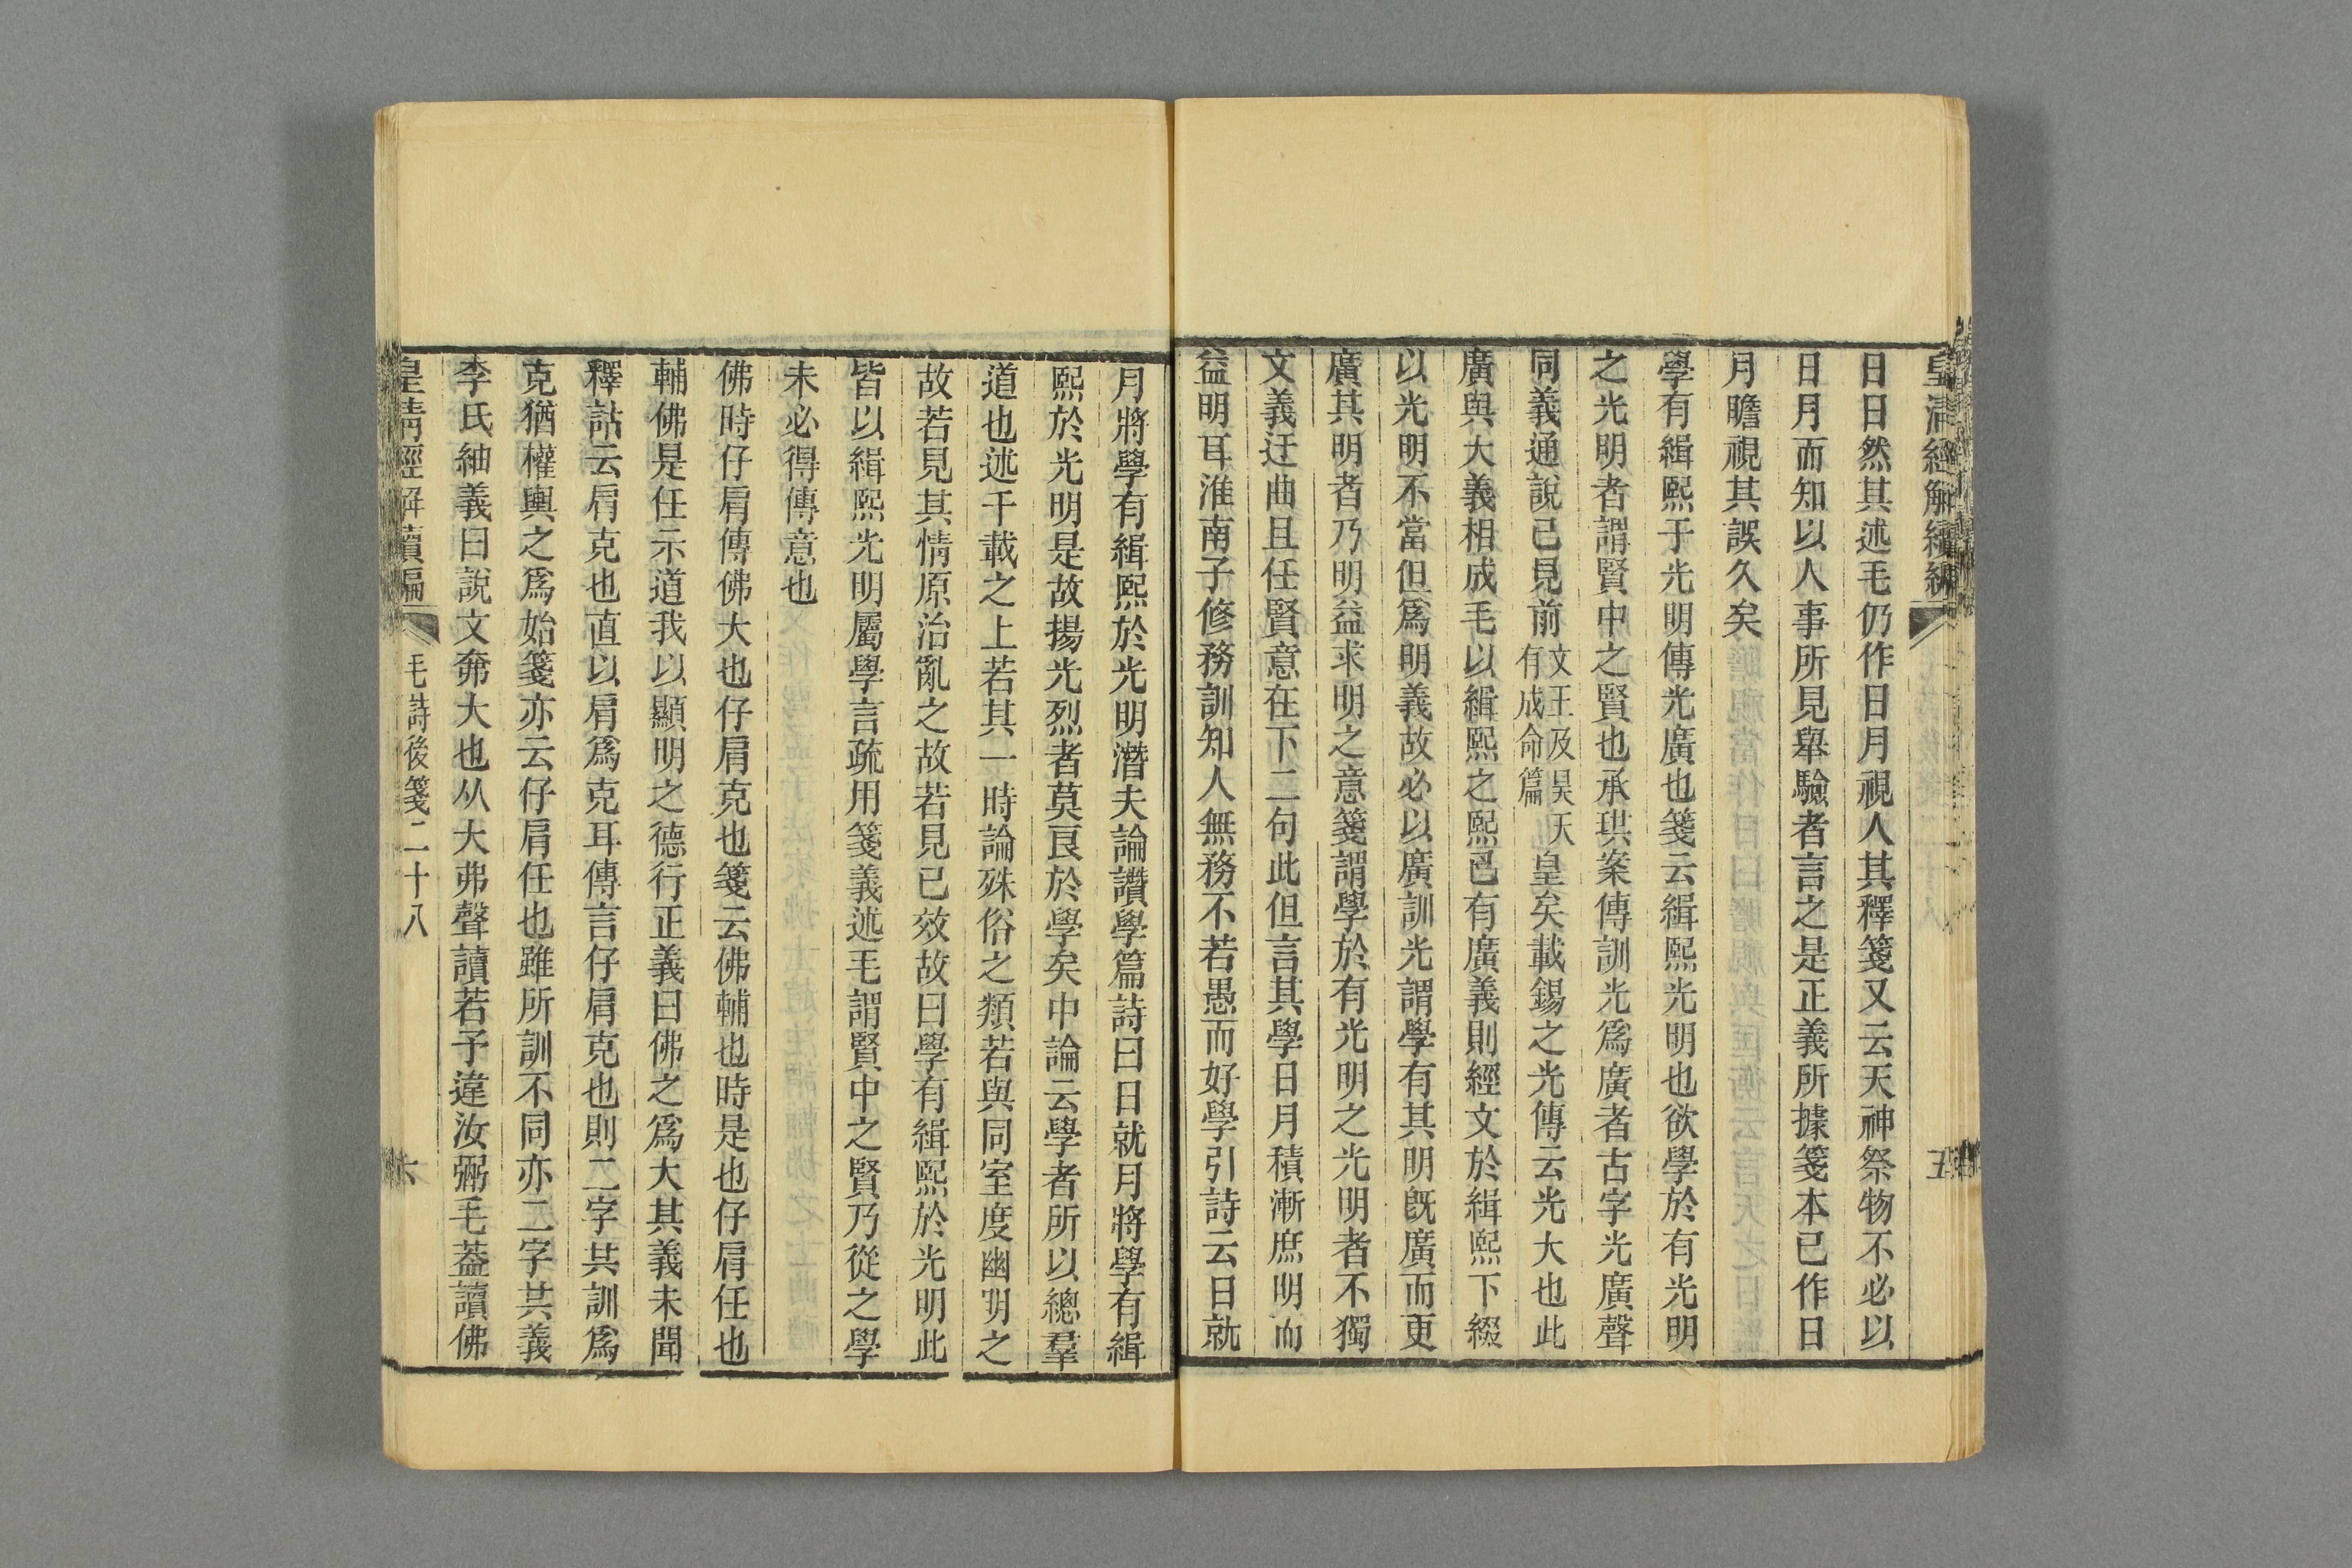 皇淸經解續編
五
日日然其述毛仍作日月視人其釋箋又云天神祭物不必以
日月而知以人事所見舉驗者言之是正義所據箋本已作日
月瞻視其誤久矣
學有緝熙于光明傳光廣也箋云緝熙光明也欲學於有光明
之光明者謂賢中之賢也承珙案傳訓光爲廣者古字光廣聲
同義通說已見前文王及昊天有成命篇皇矣載錫之光傳云光大也此
廣與大義相成毛以緝熙之熙已有廣義則經文於緝熙下綴
以光明不當但爲明義故必以廣訓光謂學有其明旣廣而更
廣其明者乃明益求明之意箋謂學於有光明之光明者不獨
文義迂曲且任賢意在下二句此但言其學日月積漸庶明而
益明耳淮南子修務訓知人無務不若愚而好學引詩云日就
月將學有緝熙於光明潛夫論讚學篇詩曰日就月將學有緝
熙於光明是故揚光烈者莫良於學矣中論云學者所以總羣
道也述千載之上若其一時論殊俗之類若與同室度幽明之
故若見其情原治亂之故若見已效故曰學有緝熙於光明此
皆以緝熙光明屬學言疏用箋義述毛謂賢中之賢乃從之學
未必得傳意也
佛時仔肩傳佛大也仔肩克也箋云佛輔也時是也仔肩任也
輔佛是任示道我以顯明之德行正義曰佛之爲大其義未聞
釋詁云肩克也直以肩爲克耳傳言仔肩克也則二字共訓爲
克猶權輿之爲始箋亦云仔肩任也雖所訓不同亦二字共義
李氏紬義曰說文奔大也从大弗聲讀若予違汝弼毛葢讀佛
皇淸經解續編
毛詩後箋二十八
六